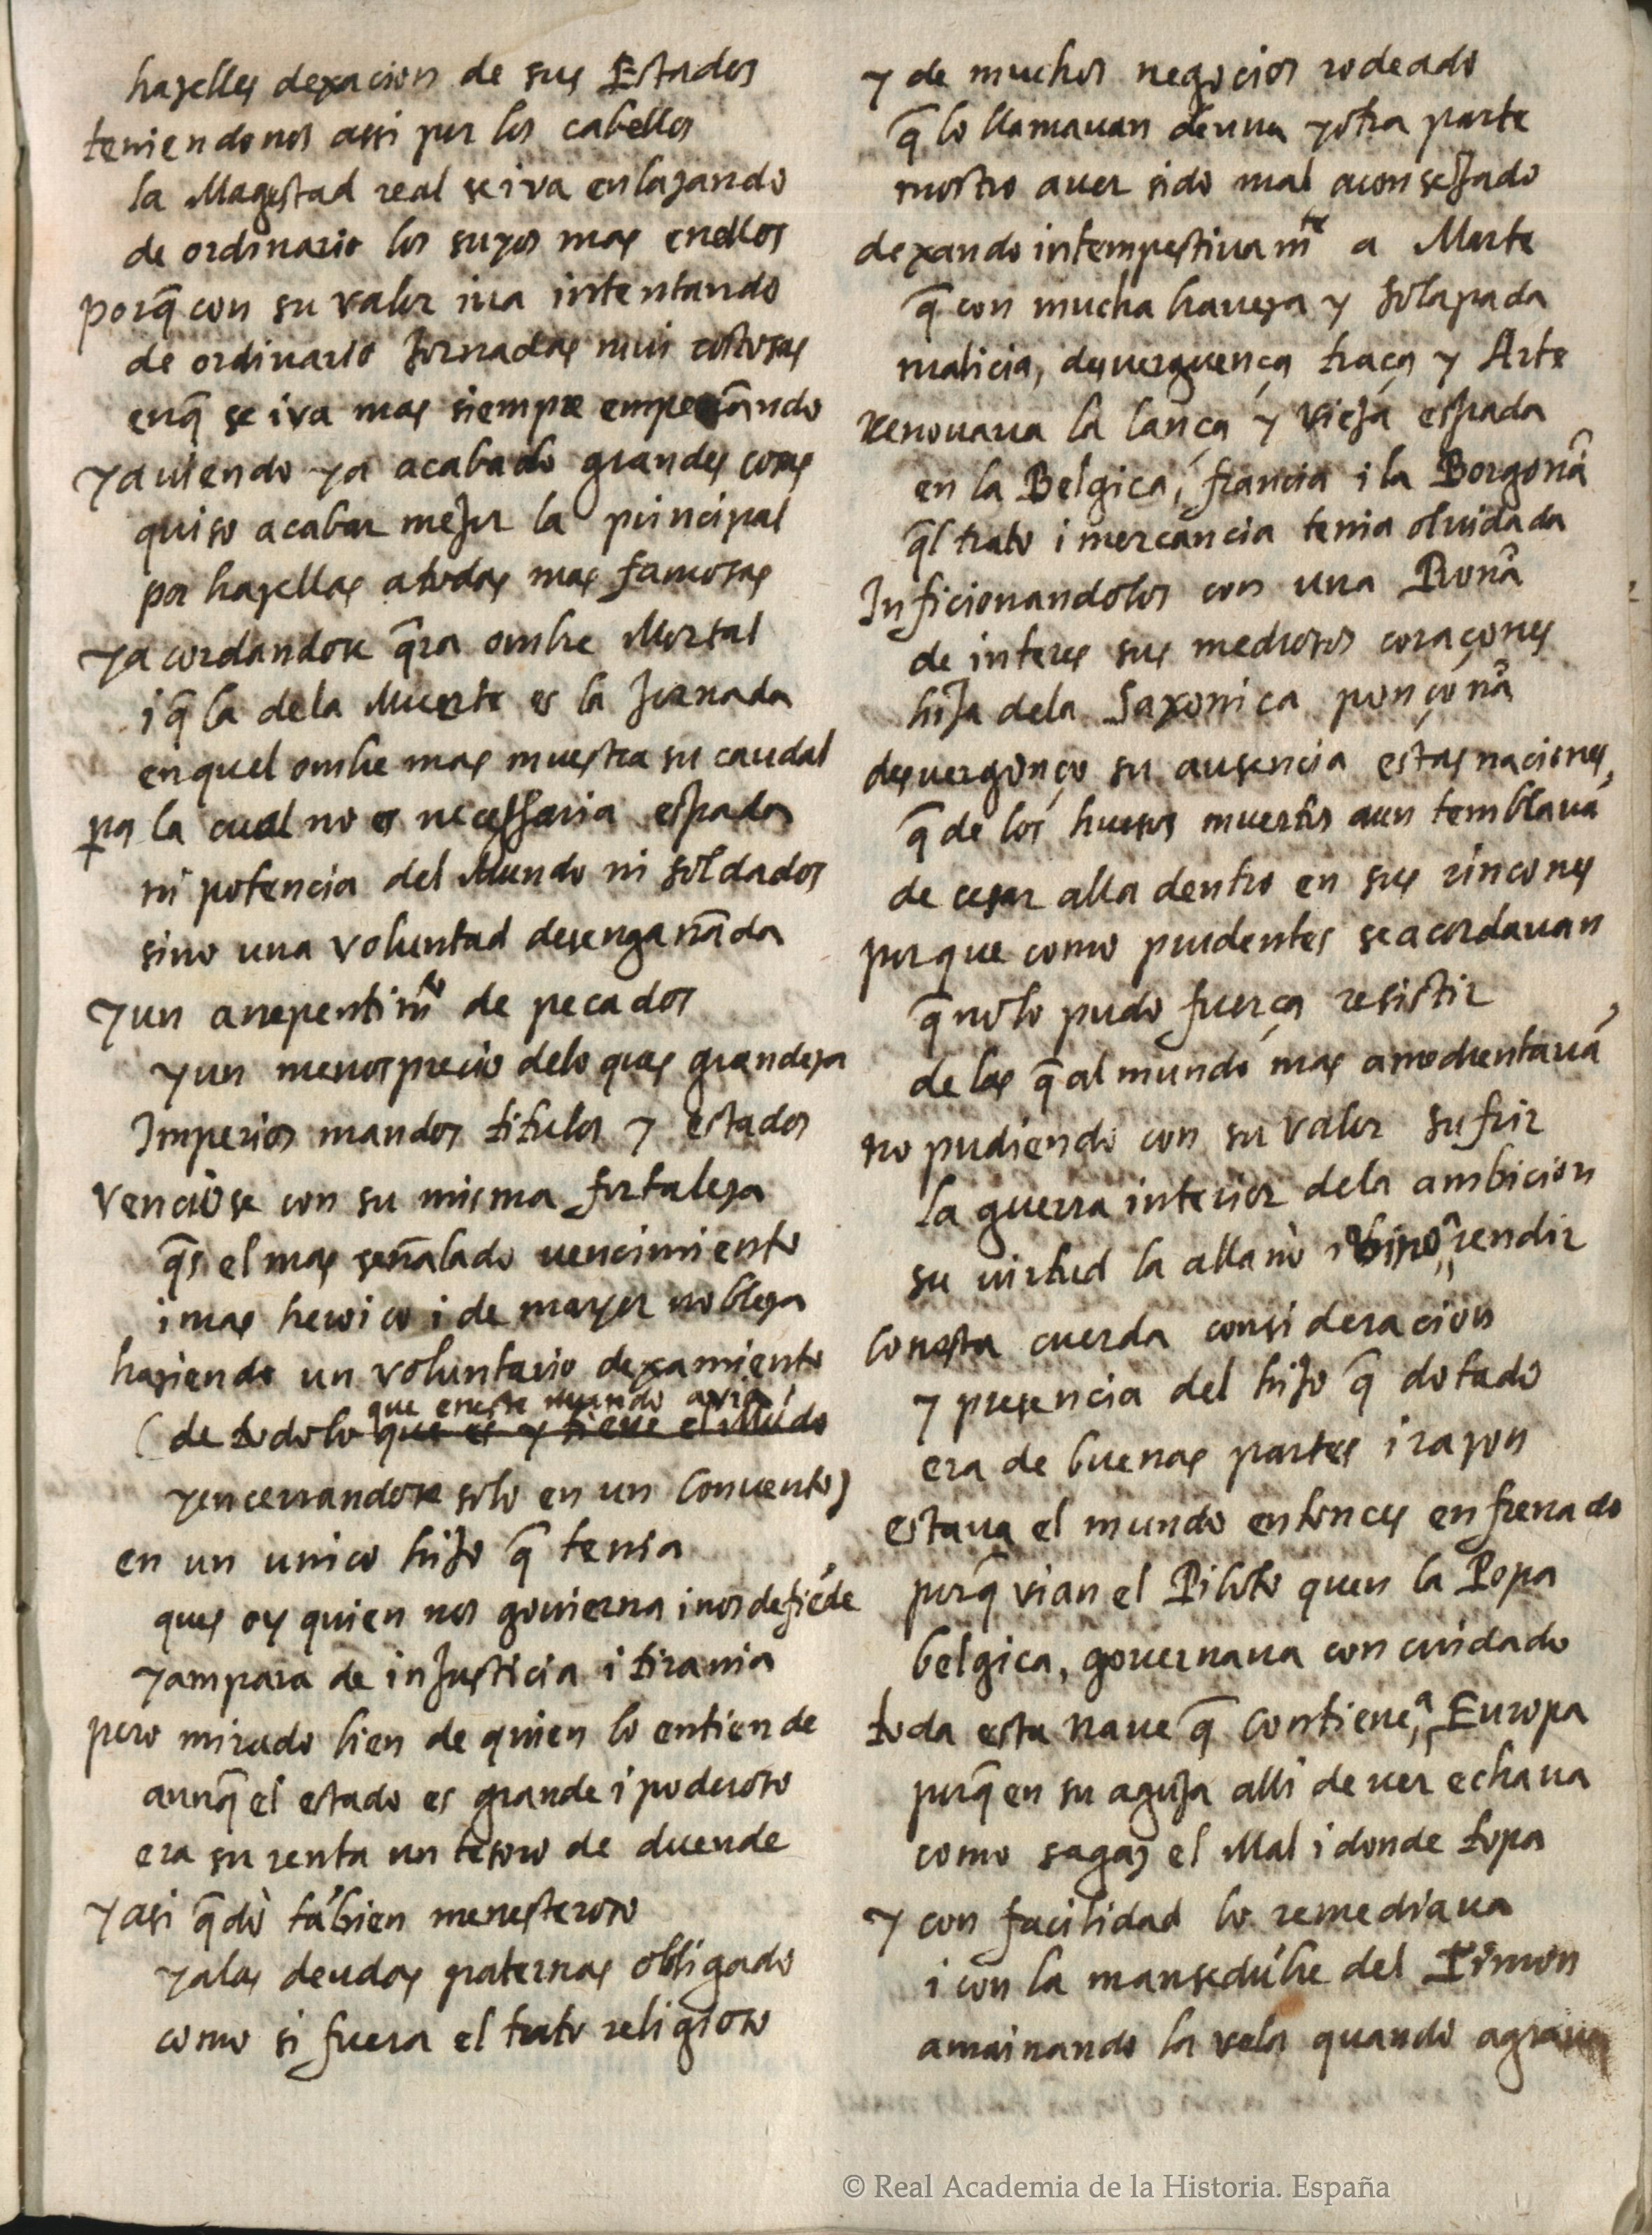 hazelles dexacion de sus Estados
teniendonos assi por los cabellos
la Magestad real se iva enlazando
de ordinario los suyos mas enellos
porq̃ con su valor iua intentando
de ordinario Jornadas mui costosas
enq̃ se iva mas siempre empeñando
y auiendo ya acabado grandes cosas
quiso acabar mejor la principal
por hazellas a todas mas famosas
y acordandose q̃ra ombre Mortal
i q̃ la dela Muerte es la Jornada
en quel ombre mas muestra su caudal
pa la cual no es necessaria espada
ni potencia del Mundo ni soldados
sino una voluntad desengañada
y un arrepentimto de pecados
y un menosprecio delo ques grandeza
Imperios mandos titulos y estados
venciose con su misma fortaleza
q̃s el mas señalado vencimiento
i mas heroico i de mayor nobleza
haziendo un voluntario dexamiento
que eneste mundo avia
(de todo lo que es y tiene el Mũdo
y encerrandose solo en un Convento)
en un unico hijo q̃ tenia
ques oy quien nos govierna i nos defiẽde
y ampara de injusticia i tirania
pero mirado bien de quien lo entiende
aunq̃ el estado es grande i poderoso
era su renta un tesoro de duende
y asi q̃dò tãbien menesteroso
y a las deudas paternas obligado
como si fuera el trato religioso
y de muchos negocios rodeado
q̃ lo llamauan de una y otra parte
mostro auer sido mal aconsejado
dexando intempestiuamte a Marte
q̃ con mucha braueza y solapada
malicia, desuerguença traça y Arte
renouaua la lança y vieja espada
en la Belgica, francia i la Borgoña
q̃l trato i mercancia tenia oluidada
Inficionandolos con una Roña
de interes sus medrosos coraçones
hija dela Saxonica ponçoña
desuergonço su ausencia estas naciones,
q̃ de los huesos muertos aun temblauã
de cesar alla dentro en sus rincones
porque como prudentes se acordauan
q̃ no lo pudo fuerça resistir
de las q̃ al mundo mas amedrentauã
no pudiendo con su valor sufrir
la guerra interior dela ambicion
su virtud la allanò i hizo rendir
Con esta cuerda consideracion
y presencia del hijo q̃ dotado
era de buenas partes i razon
estaua el mundo entonces enfrenado
porq̃ vian el Piloto quen la Popa
belgica, governaua con cuidado
toda esta naue q̃ Contiene a Europa
porq̃ en su aguja alli de ver echaua
como sagaz el Mal i donde topa
y con facilidad lo remediaua
i con la mansedũbre del Timon
amainando la vela quando agraua
© Real Academia de la Historia. España